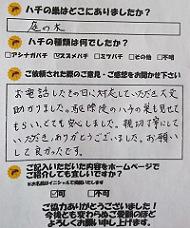 ハチの巣はどこにありましたか?
庭の木
ハチの種類は何でしたか?
□アシナガバチ □スズメバチ □ミツバチ □その他 □不明
ご依頼された際のご意見・ご感想をお聞かせ下さい
お電話したその日に対応していただき大変
助かりました。駆除後のハチの巣も見せて
もらい、とても安心しました。親切丁寧にして
いただき、ありがとうございました。お願いし
て良かったです。
ご記入いただいた内容をホームページで
ご紹介しても宜しいですか?
可 □不可
ご協力ありがとうございました!
今後とも変わらぬご愛顧のほど
よろしくお願い申し上げます。